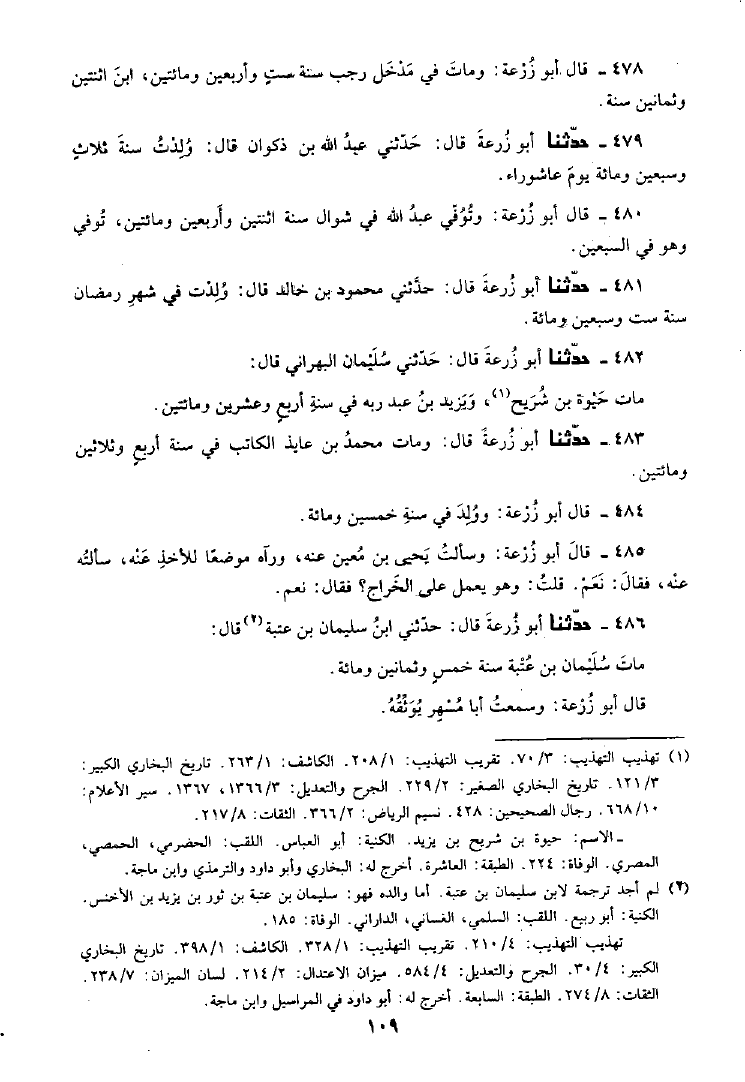 ٤٧٨ ـ قال أبو زُرْعة: وماتَ في مَدْخَل رجب سنة ستٍ وأربعين ومائتين، ابنَ اثنتين
وثمانين سنة.
٤٧٩ ـ حدّثنا أبو زُرعةَ قال: حَدّثني عبدُ الله بن ذكوان قال: وُلِدْتُ سنةَ ثلاثٍ
وسبعين ومائة يومَ عاشوراء.
٤٨٠ ـ قال أبو زُرْعة: وتُوُفّي عبدُ الله في شوال سنة اثنتين وأَربعين ومائتين، تُوفي
وهو في السبعين.
٤٨١ ـ حدّثنا أبو زُرعةَ قال: حدَّثني محمود بن خالد قال: وُلِدْت في شهرِ رمضان
سنة ست وسبعين ومائة.
٤٨٢ ـ حدّثنا أبو زُرعةَ قال: حَدّثني سُلَيْمان البهراني قال:
مات حَيْوة بن شُرَيح(١)، وَيَزيد بنُ عبد ربه في سنةِ أربعٍ وعشرين ومائتين.
٤٨٣ ـ حدّثنا أبو زُرعةَ قال: ومات محمدُ بن عايذ الكاتب في سنة أربعٍ وثلاثين
ومائتين.
٤٨٤ ـ قال أبو زُرْعة: ووُلِدَ في سنةِ خمسين ومائة.
٤٨٥ ـ قالَ أبو زُرْعة: وسألتُ يَحيى بن مُعين عنه، ورآه موضعًا للأخذِ عَنْه، سألتُه
عنْه، فقالَ: نَعَمْ. قلتُ: وهو يعمل على الخَراج؟ فقال: نعم.
٤٨٦ ـ حدّثنا أبو زُرعةَ قال: حدّثني ابنُ سليمان بن عتبة(٢) قال:
ماتَ سُلَيْمان بن عُتْبة سنة خمسٍ وثمانين ومائة.
قال أبو زُرْعة: وسمعتُ أبا مُسْهِر يُوَثِّقُهُ.
(١) تهذيب التهذيب: ٧٠/٣. تقريب التهذيب: ٢٠٨/١. الكاشف: ٢٦٣/١. تاريخ البخاري الكبير:
١٢١/٣. تاريخ البخاري الصغير: ٢٢٩/٢. الجرح والتعديل: ١٣٦٦/٣، ١٣٦٧. سير الأعلام:
٦٦٨/١٠. رجال الصحيحين: ٤٢٨. نسيم الرياض: ٣٦٦/٢. الثقات: ٢١٧/٨.
ـ الاسم: حيوة بن شريح بن يزيد. الكنية: أبو العباس. اللقب: الحضرمي، الحمصي،
المصري. الوفاة: ٢٢٤. الطبقة: العاشرة. أخرج له: البخاري وأبو داود والترمذي وابن ماجة.
(٢) لم أجد ترجمة لابن سليمان بن عتبة. أما والده فهو: سليمان بن عتبة بن ثور بن يزيد بن الأخنس.
الكنية: أبو ربيع. اللقب: السلمي، الغساني، الداراني. الوفاة: ١٨٥.
تهذيب التهذيب: ٢١٠/٤. تقريب التهذيب: ٣٢٨/١. الكاشف: ٣٩٨/١. تاريخ البخاري
الكبير: ٣٠/٤. الجرح والتعديل: ٥٨٤/٤. ميزان الاعتدال: ٢١٤/٢. لسان الميزان: ٢٣٨/٧.
الثقات: ٢٧٤/٨. الطبقة: السابعة. أخرج له: أبو داود في المراسيل وابن ماجة.
١٠٩